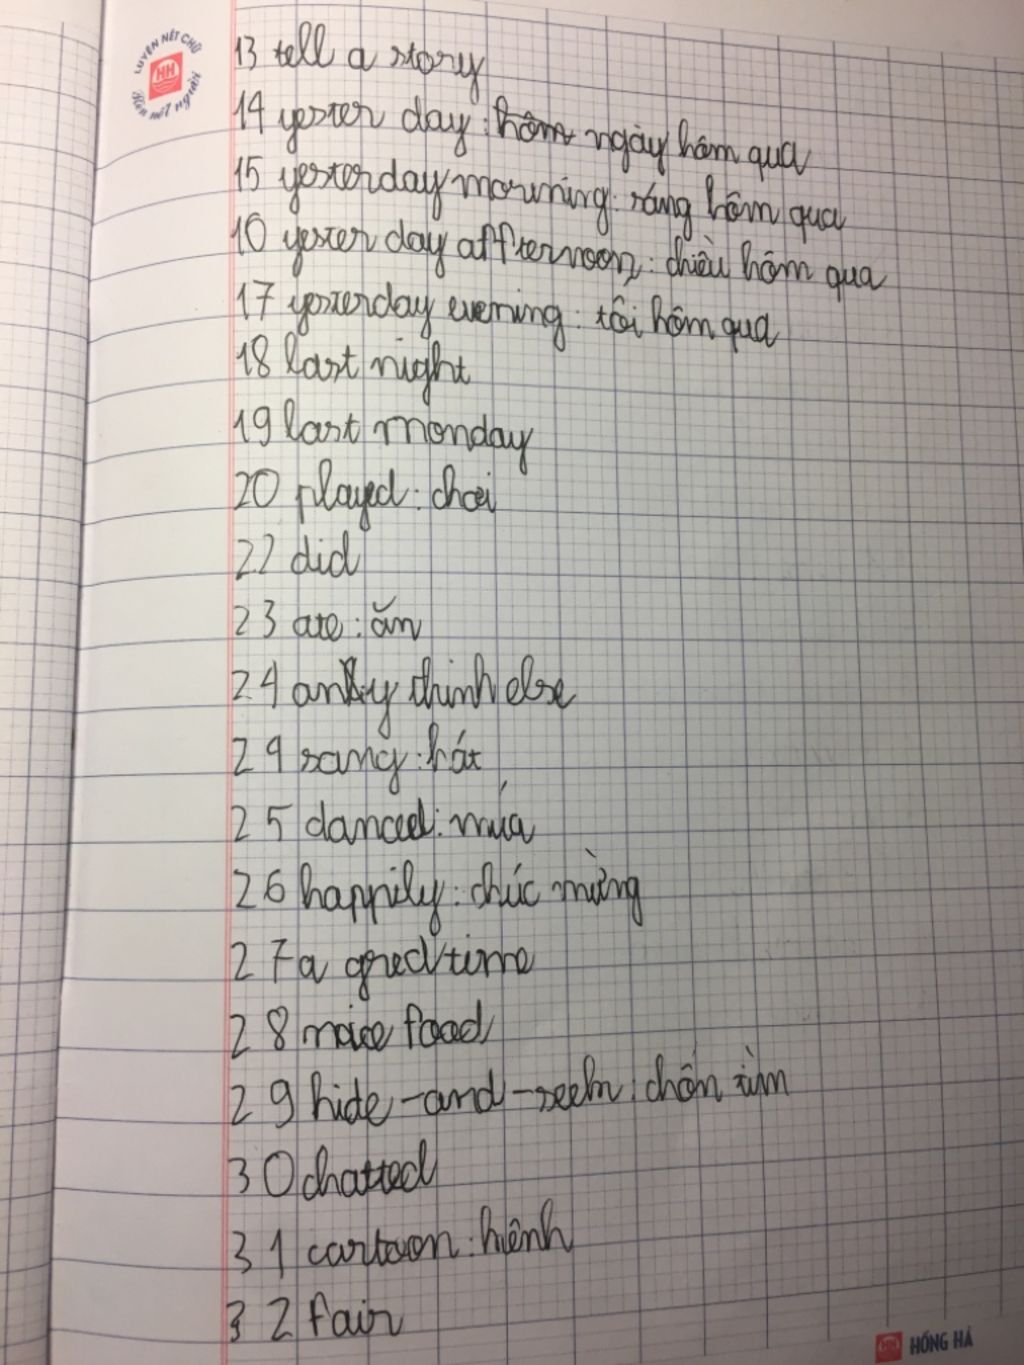 LUYỆN NÉT CHỮ
HH
Rèn nết người
13 tell a story
14 yester day : hôm ngày hôm qua
15 yesterday morning : sáng hôm qua
16 yester day affternoon : chiều hôm qua
17 yesterday evening : tối hôm qua
18 last night
19 last monday
20 played : chơi
22 did
23 ate : ăn
24 anhy thinh else
24 sang : hát
25 danced : múa
26 happily : chúc mừng
27 a gred time
28 naice food
29 hide-and-seek : chốn tìm
30 chatted
31 cartoon : hiênh
32 fair
HH HỒNG HÀ